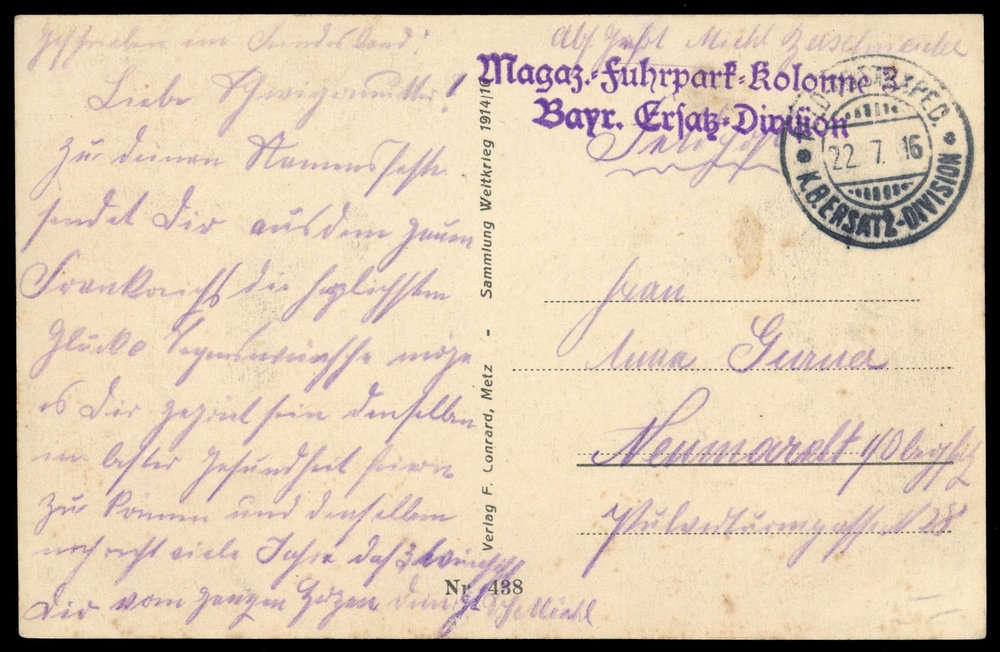 Geschrieben im Feindesland!
Liebe Schwiegermutter!
Zu deinem Namensfeste
sendet Dir aus dem
Frankreich die herzlichsten
Glück & Segenswünsche möge
es Dir gegönt sein denselben
in bester Gesundheit feiern
zu können und denselben
noch recht viele Jahre das wünscht
Dir vom ganzen Herzen dein Michl
Abs. Michl
Magaz.-Fuhrpark-Kolonne 3
Bayr. Ersatz-Division
Feldpost
K.B. FELDPOSTEXPED.
22. 7. 16
K.B. ERSATZ-DIVISION
Frau
Anna Gurner
Neumarckt i/Obpfltz
Pulverturmgasse N 28
Verlag F. Conrard, Metz - Sammlung Weltkrieg 1914/16
Nr. 438